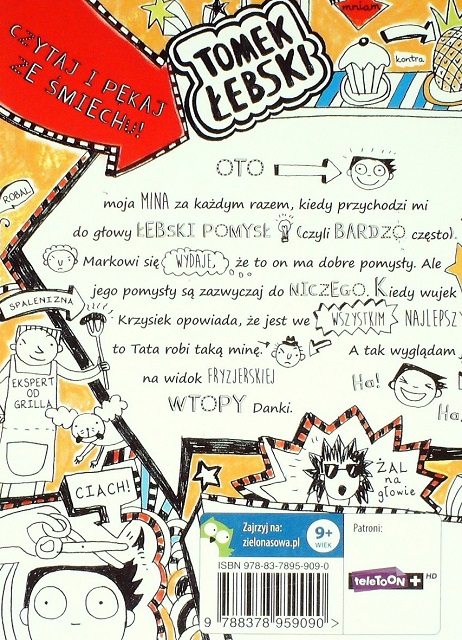 mniam
CZYTAJ I PĘKAJ
ZE ŚMIECHU!
TOMEK
ŁEBSKI
kontra
OTO
ROBAL
moja MINA za każdym razem, kiedy przychodzi mi
do głowy ŁEBSKI POMYSŁ (czyli BARDZO często).
Markowi się WYDAJE, że to on ma dobre pomysły. Ale
jego pomysły są zazwyczaj do NICZEGO. Kiedy wujek
SPALENIZNA
Krzysiek opowiada, że jest we WSZYSTKIM NAJLEPSZY
to Tata robi taką minę. A tak wyglądam
EKSPERT
OD
GRILLA
na widok FRYZJERSKIEJ Ha!
WTOPY Danki. Ha
ŻAL
na
głowie
CIACH!
Zajrzyj na:
zielonasowa.pl
9+
WIEK
Patroni:
ISBN 978-83-7895-909-0
teleTOON + HD
9 788378 959090 >